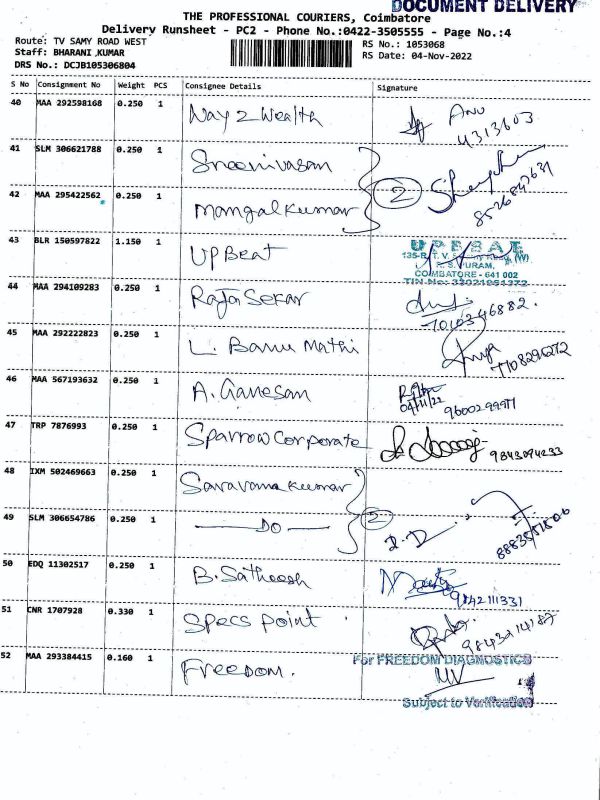 DOCUMENT DELIVERY
THE PROFESSIONAL COURIERS, Coimbatore
Delivery Runsheet - PC2 - Phone No.:0422-3505555 - Page No.:4
Route: TV SAMY ROAD WEST
RS No.: 1053068
Staff: BHARANI KUMAR
RS Date: 04-Nov-2022
DRS No.: DCJB105306804
S No Consignment No Weight PCS Consignee Details Signature
40 MAA 292598168 0.250 1 Way 2 Wealth Anu
4313603
41 SLM 306621788 0.250 1 Sreenivasan
42 MAA 295422562 0.250 1 Mangalkumar 2
43 BLR 150597822 1.150 1 UPBeat UPBEAT
COIMBATORE - 641 002
44 MAA 294109283 0.250 1 RajaSekar
7010346882.
45 MAA 292222823 0.250 1 L. Banu Mathi
46 MAA 567193632 0.250 1 A. Ganesan
04/11/22
47 TRP 7876993 0.250 1 Sparrow Corporate 9843094233
48 IXM 502469663 0.250 1 Saravana Kumar
49 SLM 306654786 0.250 1 — DO — 2
50 EDQ 11302517 0.250 1 B. Satheesh
9842111331
51 CNR 1707928 0.330 1 Specs Point
52 MAA 293384415 0.160 1 Freedom. For FREEDOM DIAGNOSTICS
Subject to Verification